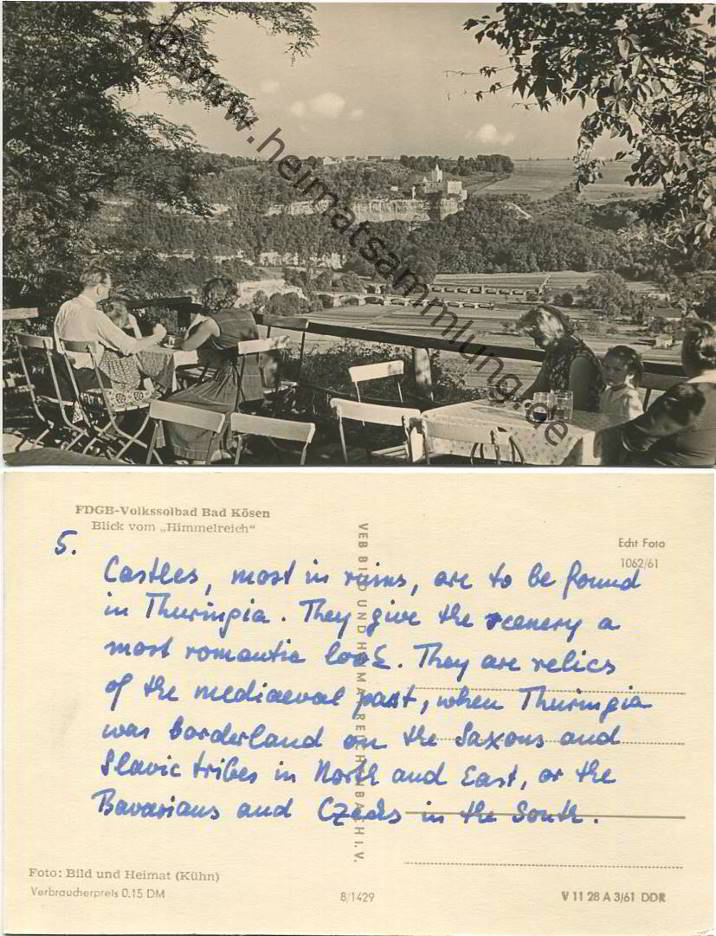 © www.heimatsammlung.de
FDGB-Volkssolbad Bad Kösen
Blick vom „Himmelreich“
Echt Foto
1062/61
5.
Castles, most in ruins, are to be found
in Thuringia. They give the scenery a
most romantic look. They are relics
of the mediaeval past, when Thuringia
was borderland on the Saxons and
Slavic tribes in North and East, or the
Bavarians and Czechs in the South.
VEB BILD UND HEIMAT REICHENBACH I. V.
Foto: Bild und Heimat (Kühn)
Verbraucherpreis 0.15 DM
8/1429
V 11 28 A 3/61 DDR